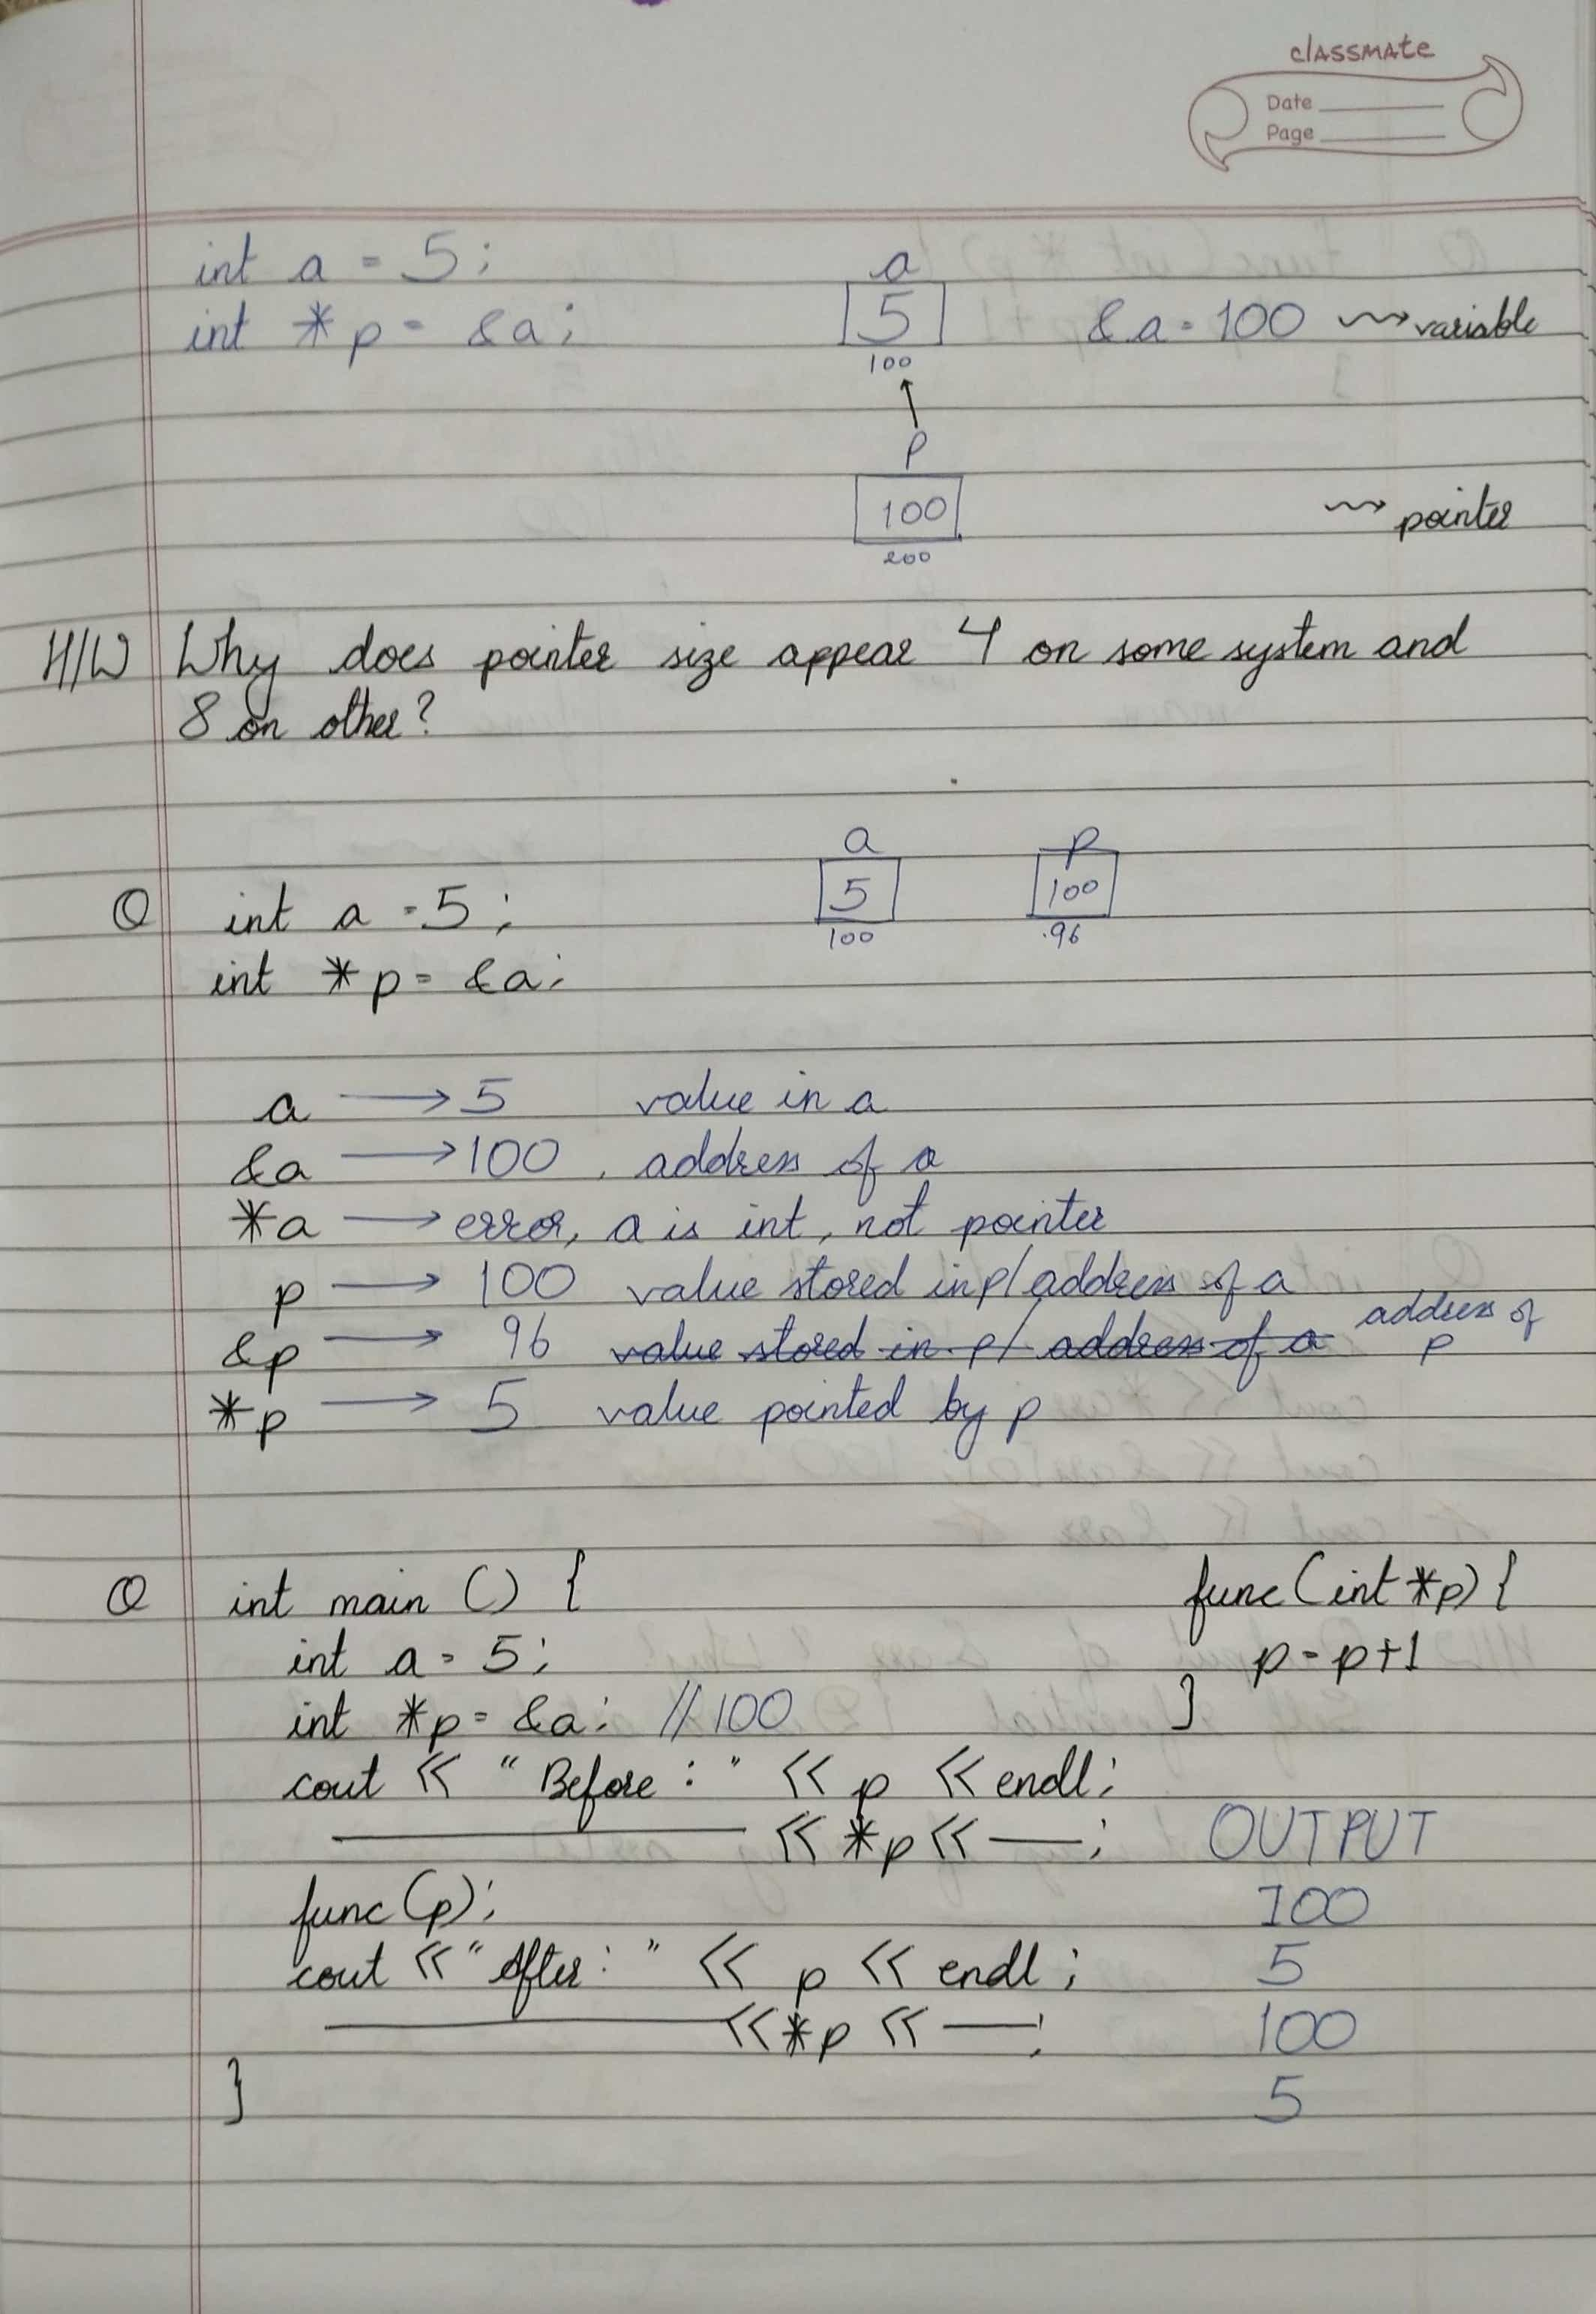 classmate
Date
Page
int a = 5;
int *p = &a;
a
5
100
&a = 100 variable
p
100
200
pointer
H/W Why does pointer size appear 4 on some system and
8 on other?
a
5
100
p
100
96
Q int a = 5;
int *p = &a;
a → 5 value in a
&a → 100, address of a
*a → error, a is int, not pointer
p → 100 value stored in p/address of a
&p → 96 value stored in p/ address of a address of
p
*p → 5 value pointed by p
Q int main () {
int a = 5;
int *p = &a; // 100
cout << "Before : " << p << endl;
—— << *p << —;
func(p);
cout << "After : " << p << endl;
—— << *p << —;
}
func(int *p) {
p = p+1
}
OUTPUT
100
5
100
5